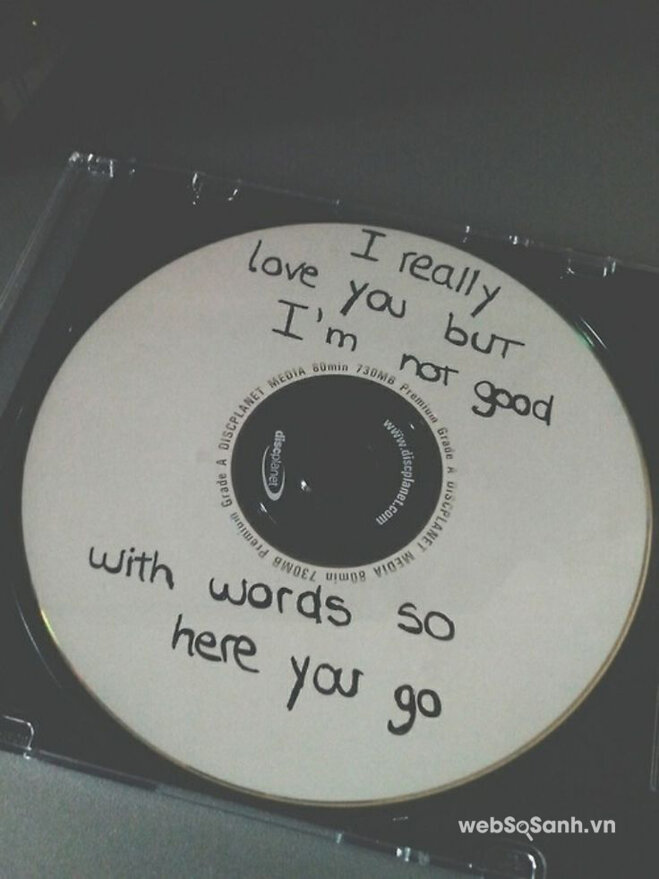 I really
love you but
I'm not good
Premium Grade A DISCPLANET MEDIA 80min 730MB Premium Grade A DISCPLANET MEDIA 80min 730MB
discplanet
www.discplanet.com
with words so
here you go
webSoSanh.vn